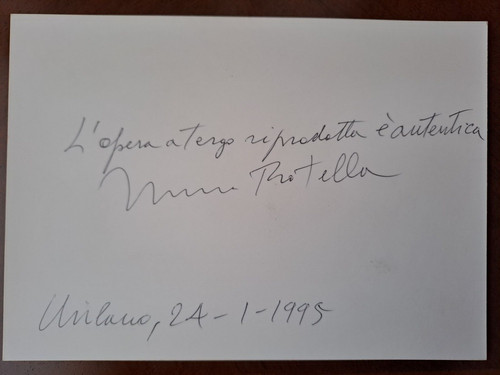 L'opera a tergo riprodotta è autentica
Mimmo Rotella
Milano, 24-1-1995